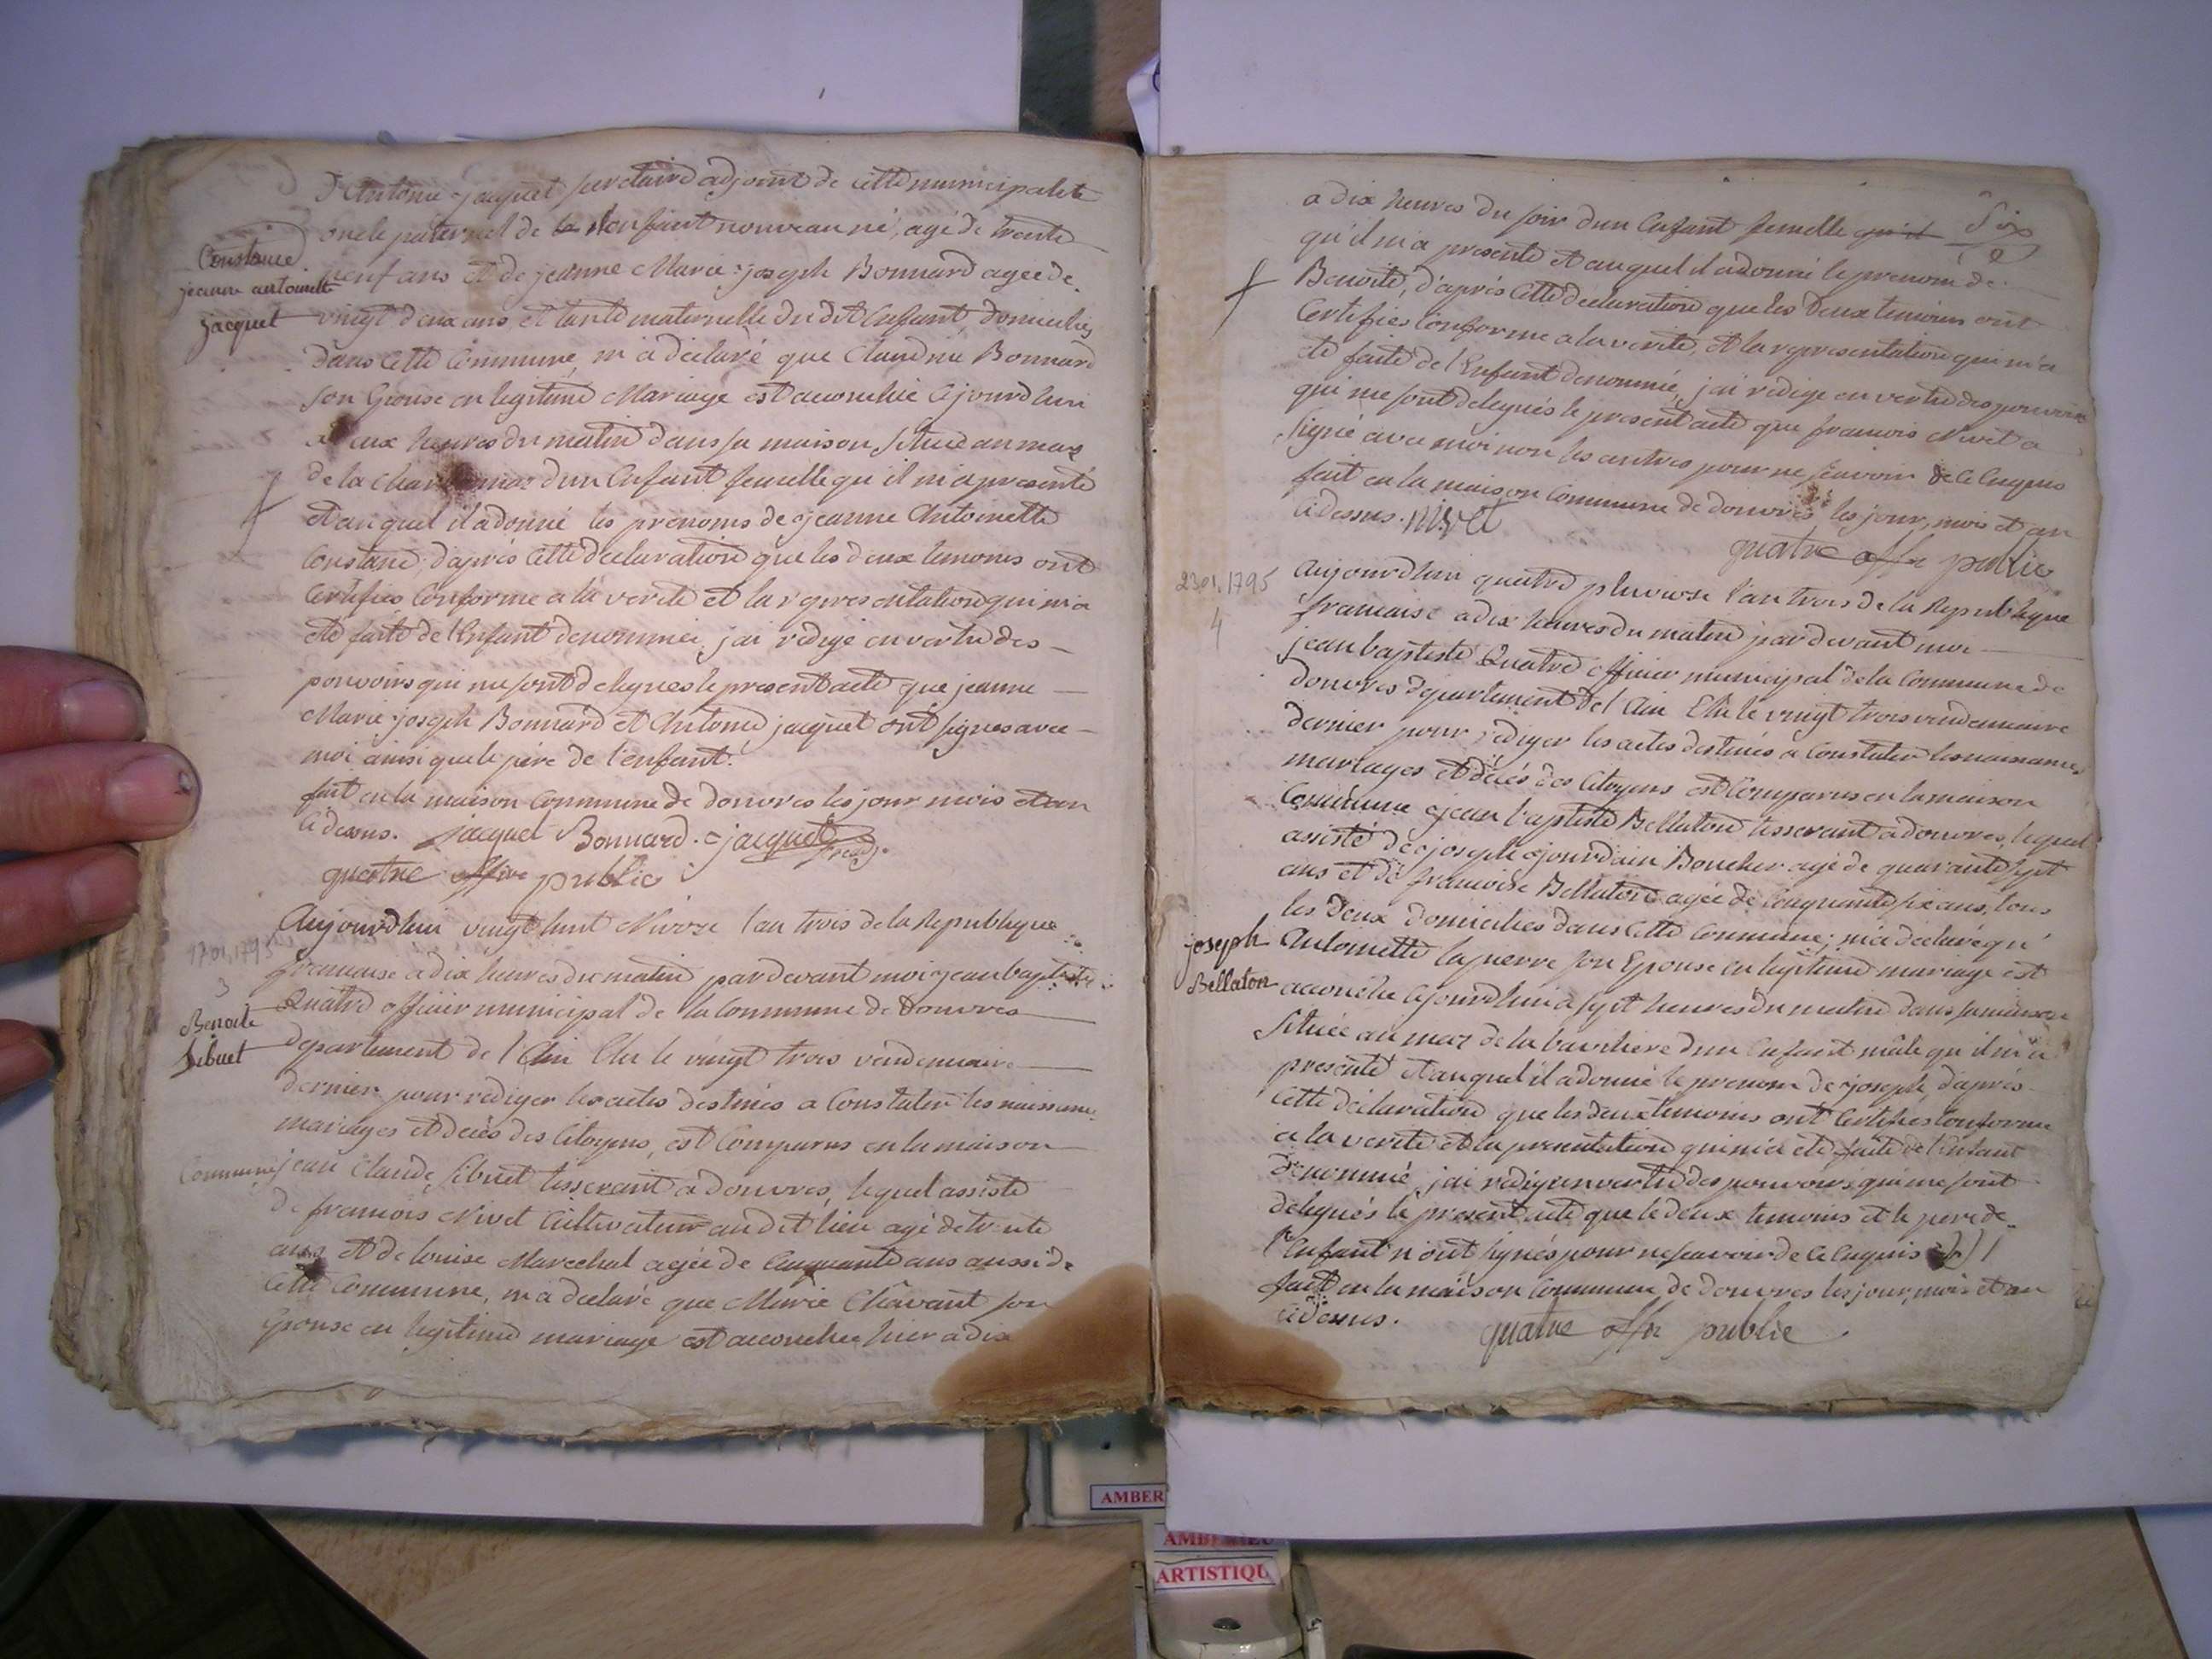 d'Antoine jacquet secretaire adjoint de cette municipalité
oncle paternel de la l'enfant nouveau né, agé de trente
Constance
jeanne antoinette
jacquet
neuf ans et de jeanne Marie joseph Bonnard agée de
vingt deux ans, et tante maternelle du dit Enfant, domiciliés
dans cette Commune, m'a declaré que Claudine Bonnard
son Epouse en legitime Mariage est accouchée ajourdhui
a deux heures du matin dans sa maison Située au mas
de la d'un Enfant femelle qu'il m'a presenté
et auquel il a donné les prenoms de jeanne Antoinette
Constance; d'après cette declaration que les deux temoins ont
Certifies Conforme a la verité et la representation qui m'a
eté faite de l'Enfant denommée, j'ai redigé en vertu des
pouvoirs qui me sont delegués le present acte que jeanne
Marie joseph Bonnard et Antoine jacquet ont signés avec
moi ainsi que le père de l'enfant.
fait en la maison Commune de douvres les jour mois et an
ci dessus. jacquet Bonnard. jacquet
quatre offier public
17.01.1795
3
Benoite
Sibuet
Aujourdhui vingt huit Nivose l'an trois de la Republique
francaise a dix heures du matin par devant moi jean baptiste
Quatre officier municipal de la Commune de Douvres
departement de l'Ain Elu le vingt trois vendemiaire
dernier pour rediger les actes destinés a Constater les naissances
mariages et decès des Citoyens, est Comparus en la maison
Commune jean Claude Sibuet tisserant a douvres, lequel assisté
de francois Nivet Cultivateur au dit lieu agé de trente
ans et de louise Marechal agée de Cinquante ans aussi de
cette Commune, m'a declaré que Marie Chavant son
épouse en legitime mariage est accouchée hier a dix
Six
2
a dix heures du soir d'un Enfant femelle qu'il
qu'il m'a presenté et auquel il a donné le prenom de
Benoite, d'après cette declaration que les deux temoins ont
Certifies Conforme a la verité, et la representation qui m'a
eté faite de l'Enfant denommée, j'ai redigé en vertu des pouvoirs
qui me sont delegués le present acte que francois Nivet a
signé avec moi non les autres pour ne scavoir de ce Enquis
fait en la maison Commune de douvres les jour, mois et an
ci dessus. nivet
quatre offr public
23.01.1795
4
Aujourdhui quatre pluviose l'an trois de la Republique
francaise a dix heures du matin par devant moi
jean baptiste Quatre officier municipal de la Commune de
douvres departement de l'Ain Elu le vingt trois vendemiaire
dernier pour rediger les actes destinés a Constater les naissances
mariages et décès des Citoyens est Comparus en la maison
Commune jean baptiste Bellaton tisserant a douvres, lequel
assisté de joseph jourdain Boucher agé de quarante sept
ans et de francoise Bellaton agée de Cinquante six ans, tous
les deux domiciliés dans cette Commune; m'a declaré qu'
joseph
Bellaton
Antoinette lapierre son Epouse en legitime mariage est
accouchée ajourdhui a sept heures du matin dans sa maison
Située au mas de la d'un Enfant mâle qu'il m'a
presenté et auquel il a donné le prenom de joseph, d'après
cette declaration que les deux temoins ont Certifies Conforme
a la verité et la presentation qui m'a eté faite de l'Enfant
denommé, j'ai redigé en vertu des pouvoirs qui me sont
delegués le present acte que le deux temoins et le père de
l'Enfant n'ont signés pour ne scavoir de ce Enquis
fait en la maison Commune de douvres les jour, mois et an
ci dessus.
quatre offr public
AMBER
ARTISTIQU